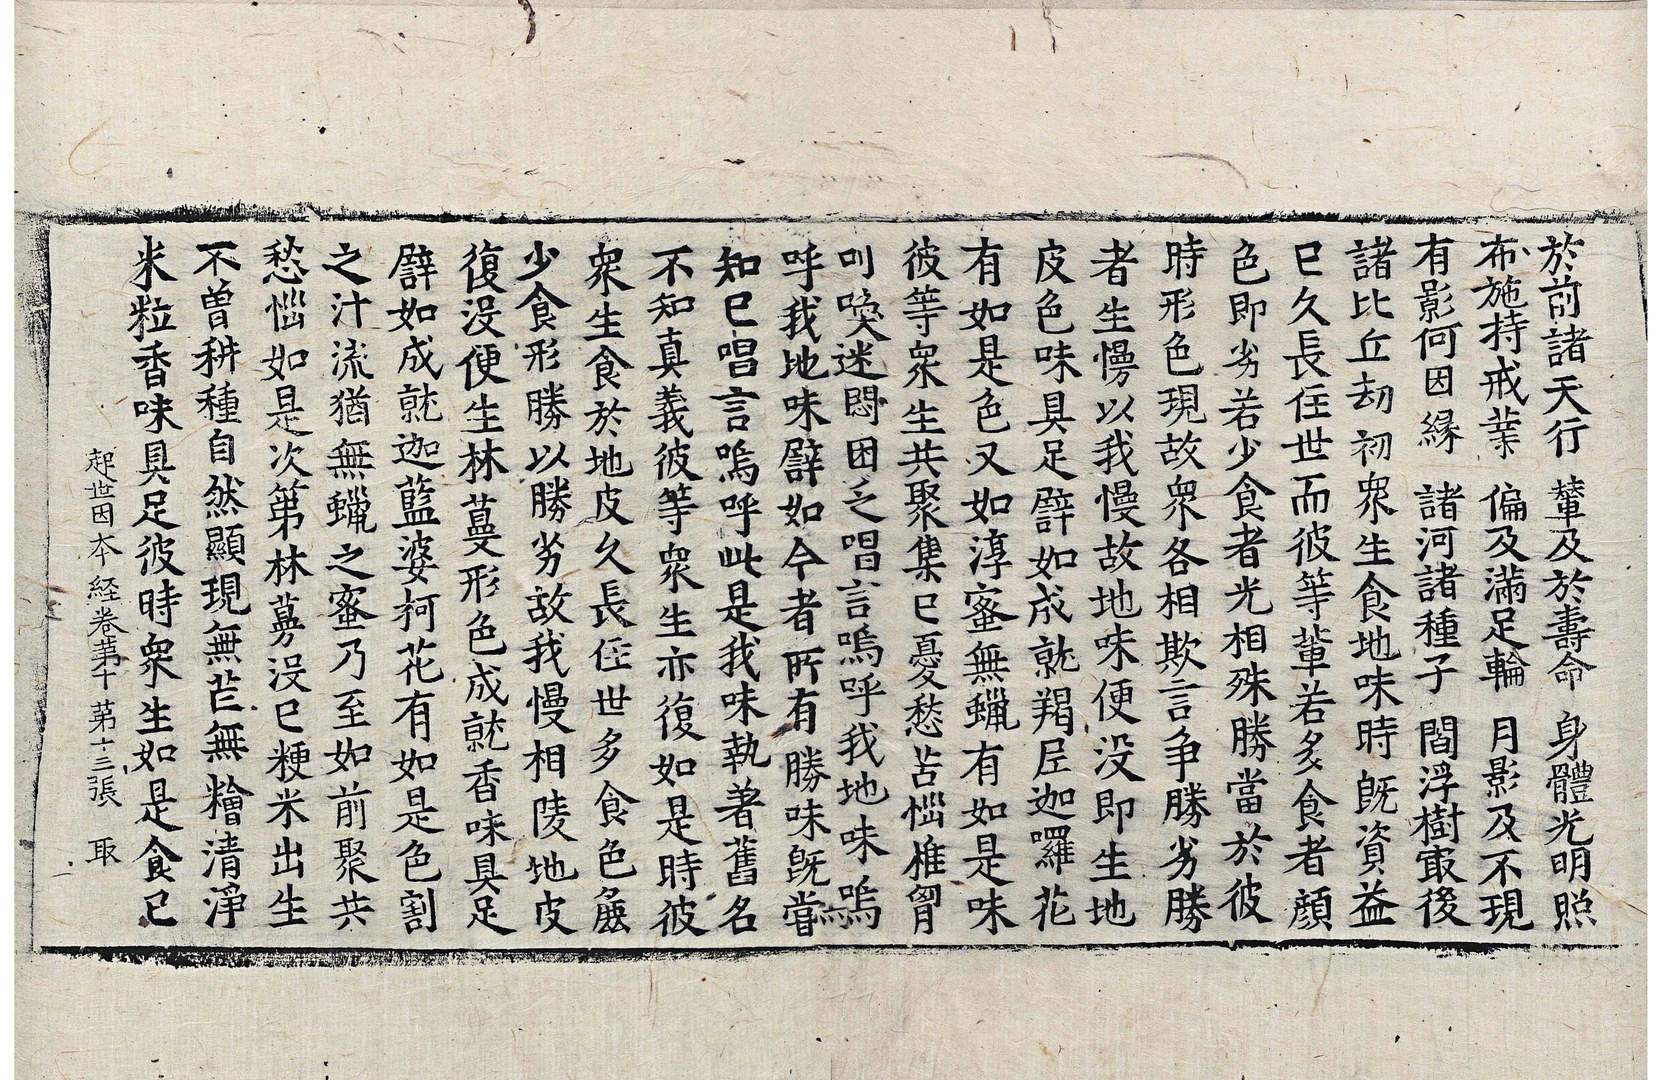 於前諸天行 輦及於壽命 身體光明照
布施持戒業 偏及滿足輪 月影及不現
有影何因緣 諸河諸種子 閻浮樹㝡後
諸比丘劫初衆生食地味時旣資益
已久長住世而彼等輩若多食者顔
色即劣若少食者光相殊勝當於彼
時形色現故衆各相欺言爭勝劣勝
者生慢以我慢故地味便没即生地
皮色味具足譬如成就羯尼迦囉花
有如是色又如淳蜜無蠟有如是味
彼等衆生共聚集已憂愁苦惱椎胷
叫喚迷悶困乏唱言嗚呼我地味嗚
呼我地味譬如今者所有勝味旣嘗
知已唱言嗚呼此是我味執著舊名
不知真義彼等衆生亦復如是時彼
衆生食於地皮久長住世多食色麁
少食形勝以勝劣故我慢相陵地皮
復没便生林蔓形色成就香味具足
譬如成就迦藍婆柯花有如是色割
之汁流猶無蠟之蜜乃至如前聚共
愁惱如是次第林蔓没已粳米出生
不曾耕種自然顯現無芒無䊧清淨
米粒香味具足彼時衆生如是食已
起世因本経卷第十 第十三張 取